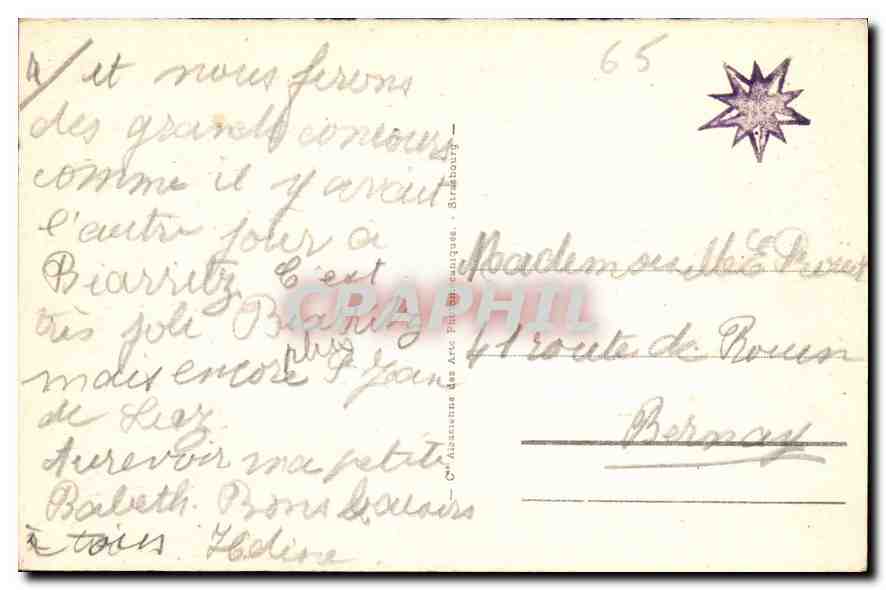 et nous ferons
des grands concours
comme il y avait
l'autre jour à
Biarritz. C'est
très joli Biarritz
mais encore plus St Jean
de Luz.
Aurevoir ma petite
Babeth. Bons baisers
à tous
65
Mademoiselle E
41 route de Rouen
Bernay
Cie Alsacienne des Arts Photomécaniques. - Strasbourg
CPAPHIL